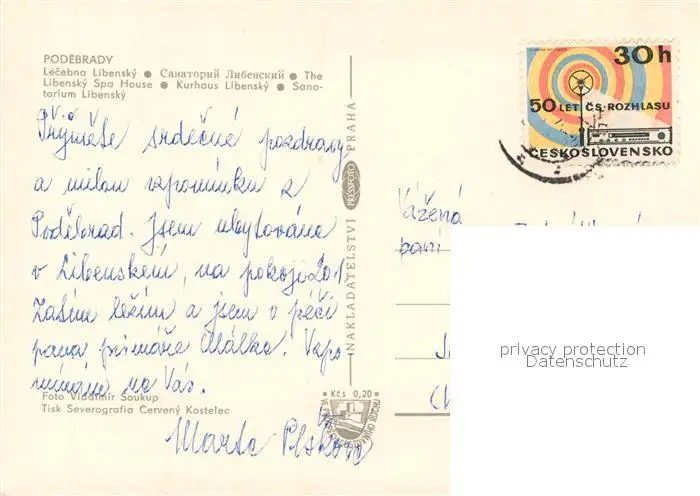 PODĚBRADY
Léčebna Libenský ● Санаторий Либенский ● The
Libenský Spa House ● Kurhaus Libenský ● Sana-
torium Libenský
Přijměte srdečné pozdravy
a milou vzpomínku z
Poděbrad. Jsem ubytována
v Libenském, na pokoji 201.
Zatím ležím a jsem v péči
pana primáře Málka. Vzpo-
mínám na Vás.
Foto Vladimír Soukup
Tisk Severografia Červený Kostelec
Marta
NAKLADATELSTVÍ PRESSFOTO PRAHA
Kčs 0,20
30h
50 LET ČS. ROZHLASU
ČESKOSLOVENSKO
Vážená
paní
privacy protection
Datenschutz